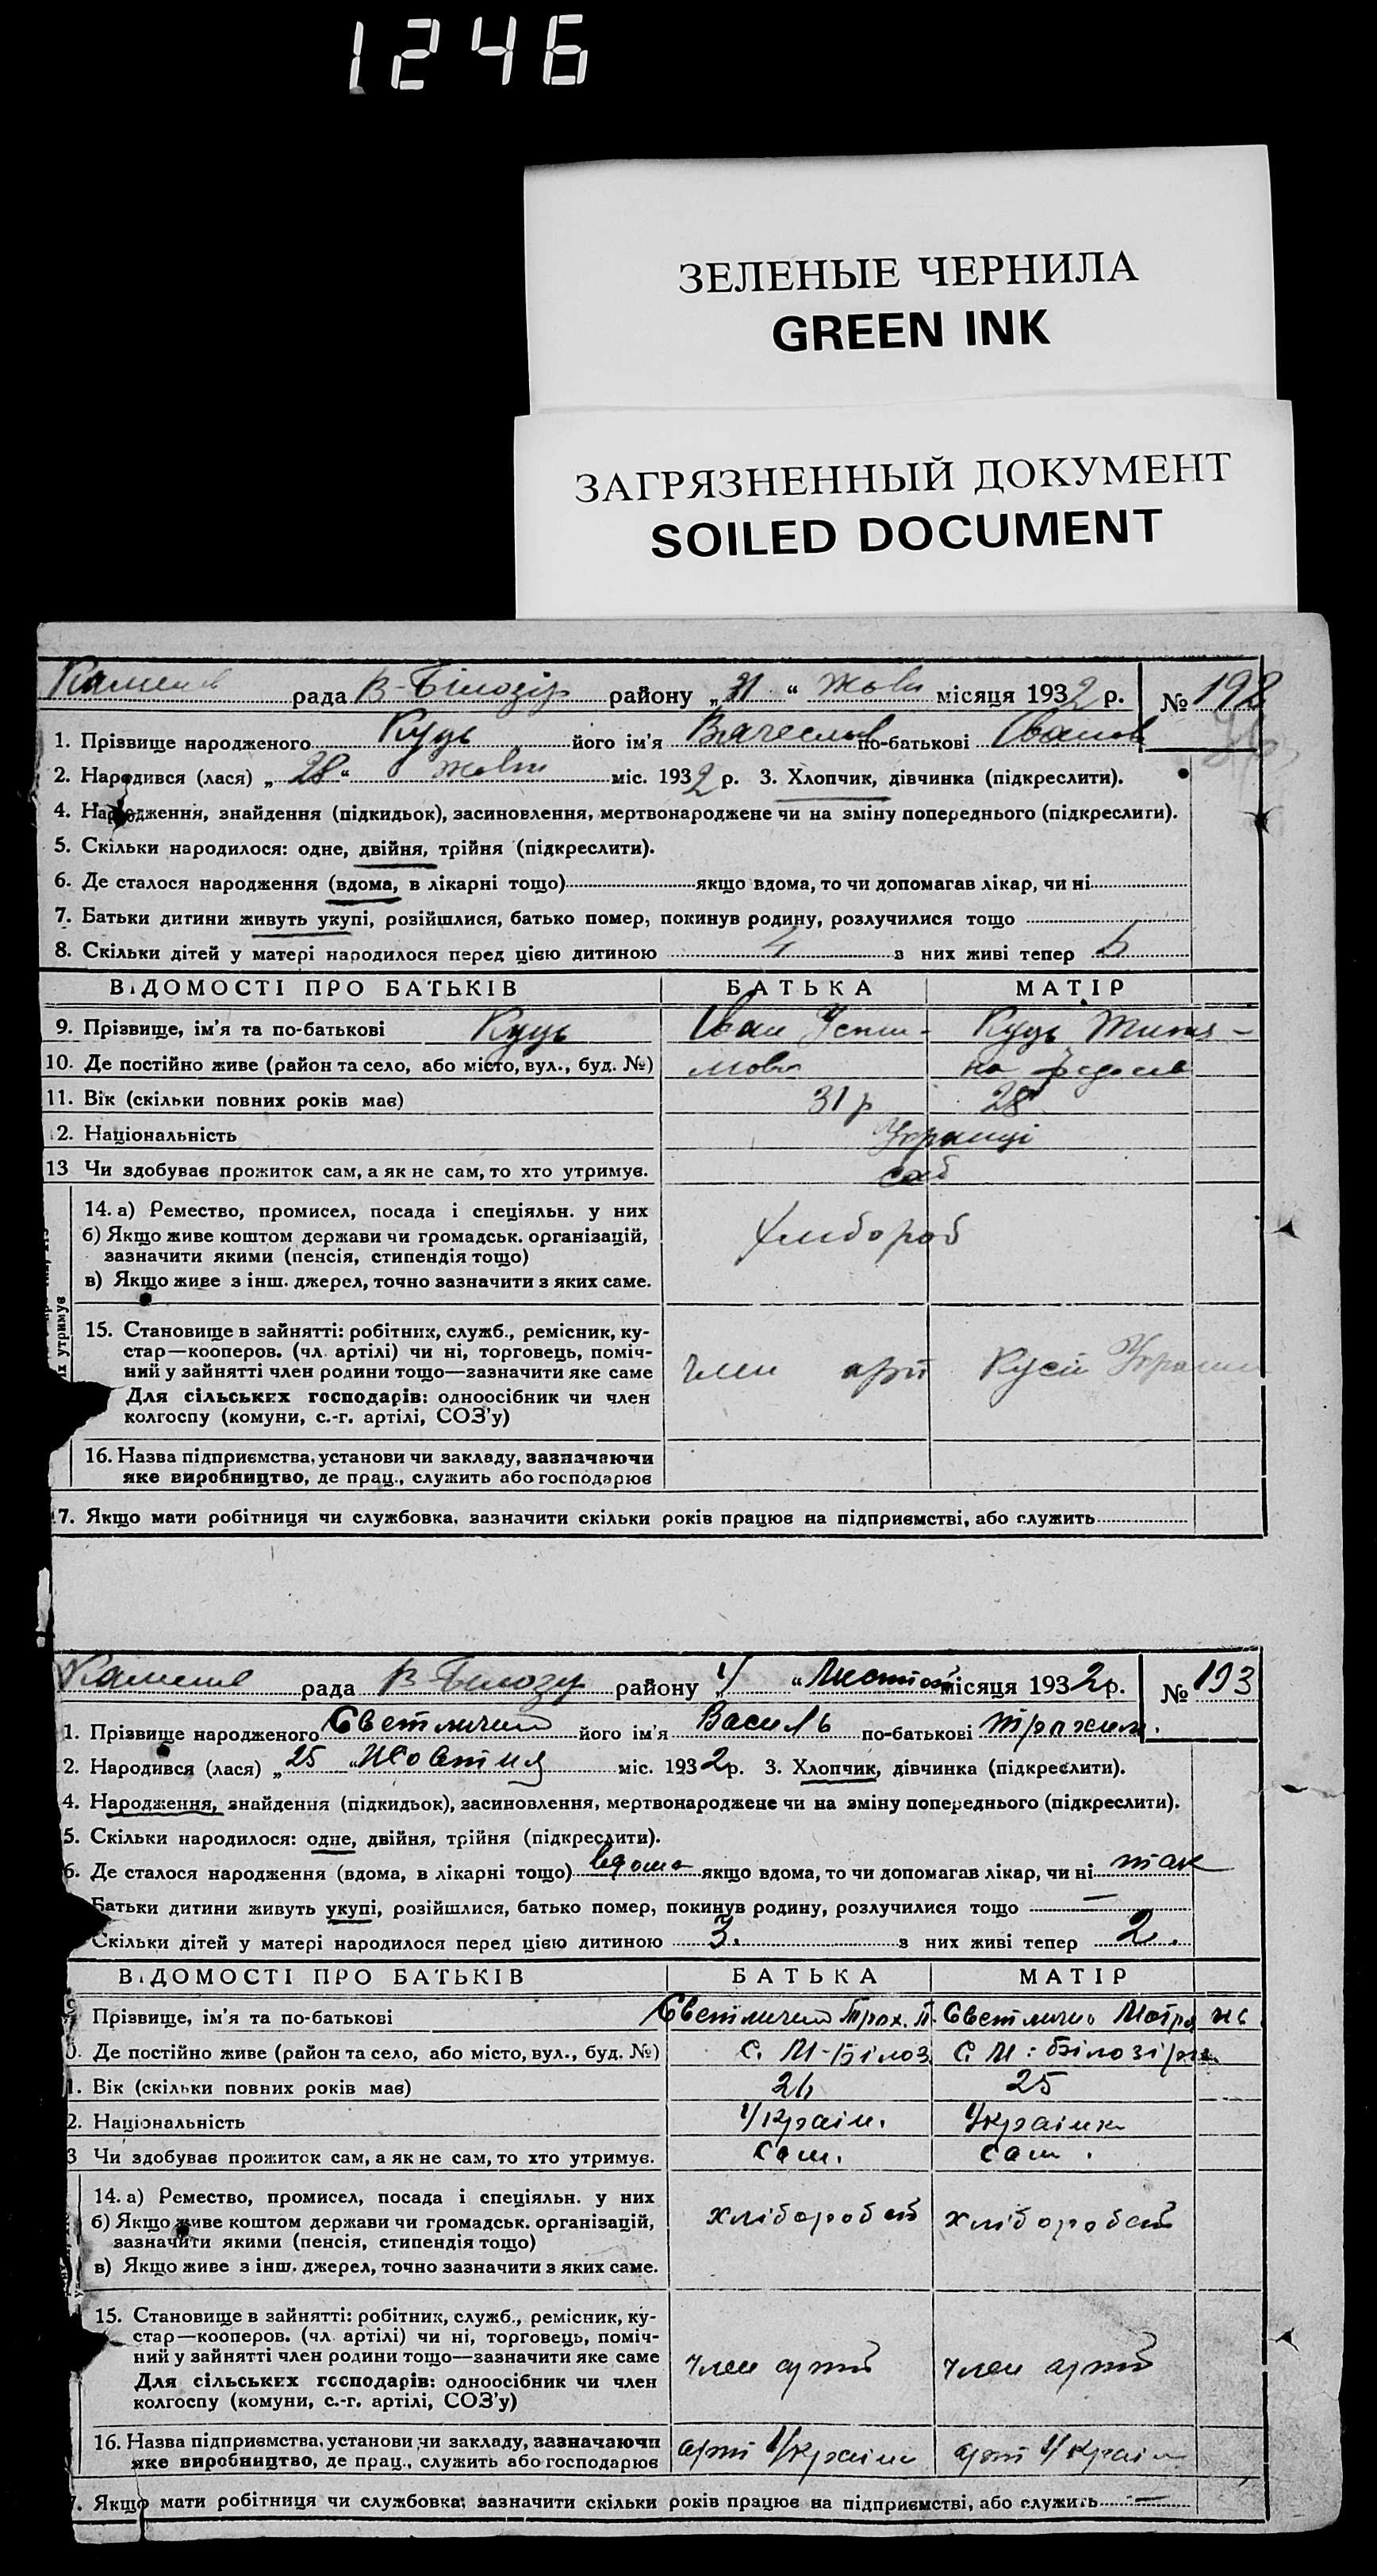 1246
ЗЕЛЕНЫЕ ЧЕРНИЛА
GREEN INK
ЗАГРЯЗНЕННЫЙ ДОКУМЕНТ
SOILED DOCUMENT
рада В-Білозір району „31“ Жовт місяця 1932 р. № 192
1. Прізвище народженого Куць його ім'я Вячеслав по-батькові Іванов
2. Народився (лася) „28“ жовтн міс. 1932 р. 3. Хлопчик, дівчинка (підкреслити).
4. Народження, знайдення (підкидьок), засиновлення, мертвонароджене чи на зміну попереднього (підкреслити).
5. Скільки народилося: одне, двійня, трійня (підкреслити).
6. Де сталося народження (вдома, в лікарні тощо) якщо вдома, то чи допомагав лікар, чи ні
7. Батьки дитини живуть укупі, розійшлися, батько помер, покинув родину, розлучилися тощо
8. Скільки дітей у матері народилося перед цією дитиною 4 з них живі тепер
ВІДОМОСТІ ПРО БАТЬКІВ БАТЬКА МАТІР
9. Прізвище, ім'я та по-батькові Куць Іван Усти- Куць
10. Де постійно живе (район та село, або місто, вул., буд. №) мови на Федосів
11. Вік (скільки повних років має) 31 р 28
12. Національність Українці
13 Чи здобуває прожиток сам, а як не сам, то хто утримує.
14. а) Ремество, промисел, посада і спеціяльн. у них
б) Якщо живе коштом держави чи громадськ. організацій,
зазначити якими (пенсія, стипендія тощо)
хлибороб
в) Якщо живе з інш. джерел, точно зазначити з яких саме.
их утримує
15. Становище в зайнятті: робітник, служб., ремісник, ку-
стар—кооперов. (чл. артілі) чи ні, торговець, поміч-
ний у зайнятті член родини тощо—зазначити яке саме
член арті
Для сільських господарів: одноосібник чи член
колгоспу (комуни, с.-г. артілі, СОЗ'у)
16. Назва підприємства, установи чи закладу, зазначаючи
яке виробництво, де прац., служить або господарює
7. Якщо мати робітниця чи службовка, зазначити скільки років працює на підприємстві, або служить
рада В-Білозір району „1“ Листоп місяця 1932 р. № 193
1. Прізвище народженого Светличний його ім'я Василь по-батькові Трохим.
2. Народився (лася) „25“ Жовтня міс. 1932 р. 3. Хлопчик, дівчинка (підкреслити).
4. Народження, знайдення (підкидьок), засиновлення, мертвонароджене чи на зміну попереднього (підкреслити).
5. Скільки народилося: одне, двійня, трійня (підкреслити).
6. Де сталося народження (вдома, в лікарні тощо) вдома якщо вдома, то чи допомагав лікар, чи ні так
Батьки дитини живуть укупі, розійшлися, батько помер, покинув родину, розлучилися тощо —
Скільки дітей у матері народилося перед цією дитиною 3. з них живі тепер 2.
ВІДОМОСТІ ПРО БАТЬКІВ БАТЬКА МАТІР
Прізвище, ім'я та по-батькові Светличний Трох. П. Светлична Мотря
0. Де постійно живе (район та село, або місто, вул., буд. №) С. М-Білоз. С. М: Білозірка
1. Вік (скільки повних років має) 26 25
2. Національність Україн. Українка
3 Чи здобуває прожиток сам, а як не сам, то хто утримує. сам. сам.
14. а) Ремество, промисел, посада і спеціяльн. у них
хлібороб хлібороб
б) Якщо живе коштом держави чи громадськ. організацій,
зазначити якими (пенсія, стипендія тощо)
в) Якщо живе з інш. джерел, точно зазначити з яких саме.
15. Становище в зайнятті: робітник, служб., ремісник, ку-
стар—кооперов. (чл. артілі) чи ні, торговець, поміч-
ний у зайнятті член родини тощо—зазначити яке саме
член артіл член артіл
Для сільських господарів: одноосібник чи член
колгоспу (комуни, с.-г. артілі, СОЗ'у)
16. Назва підприємства, установи чи закладу, зазначаючи
арт Україн арт Україн
яке виробництво, де прац., служить або господарює
7. Якщо мати робітниця чи службовка, зазначити скільки років працює на підприємстві, або служить —